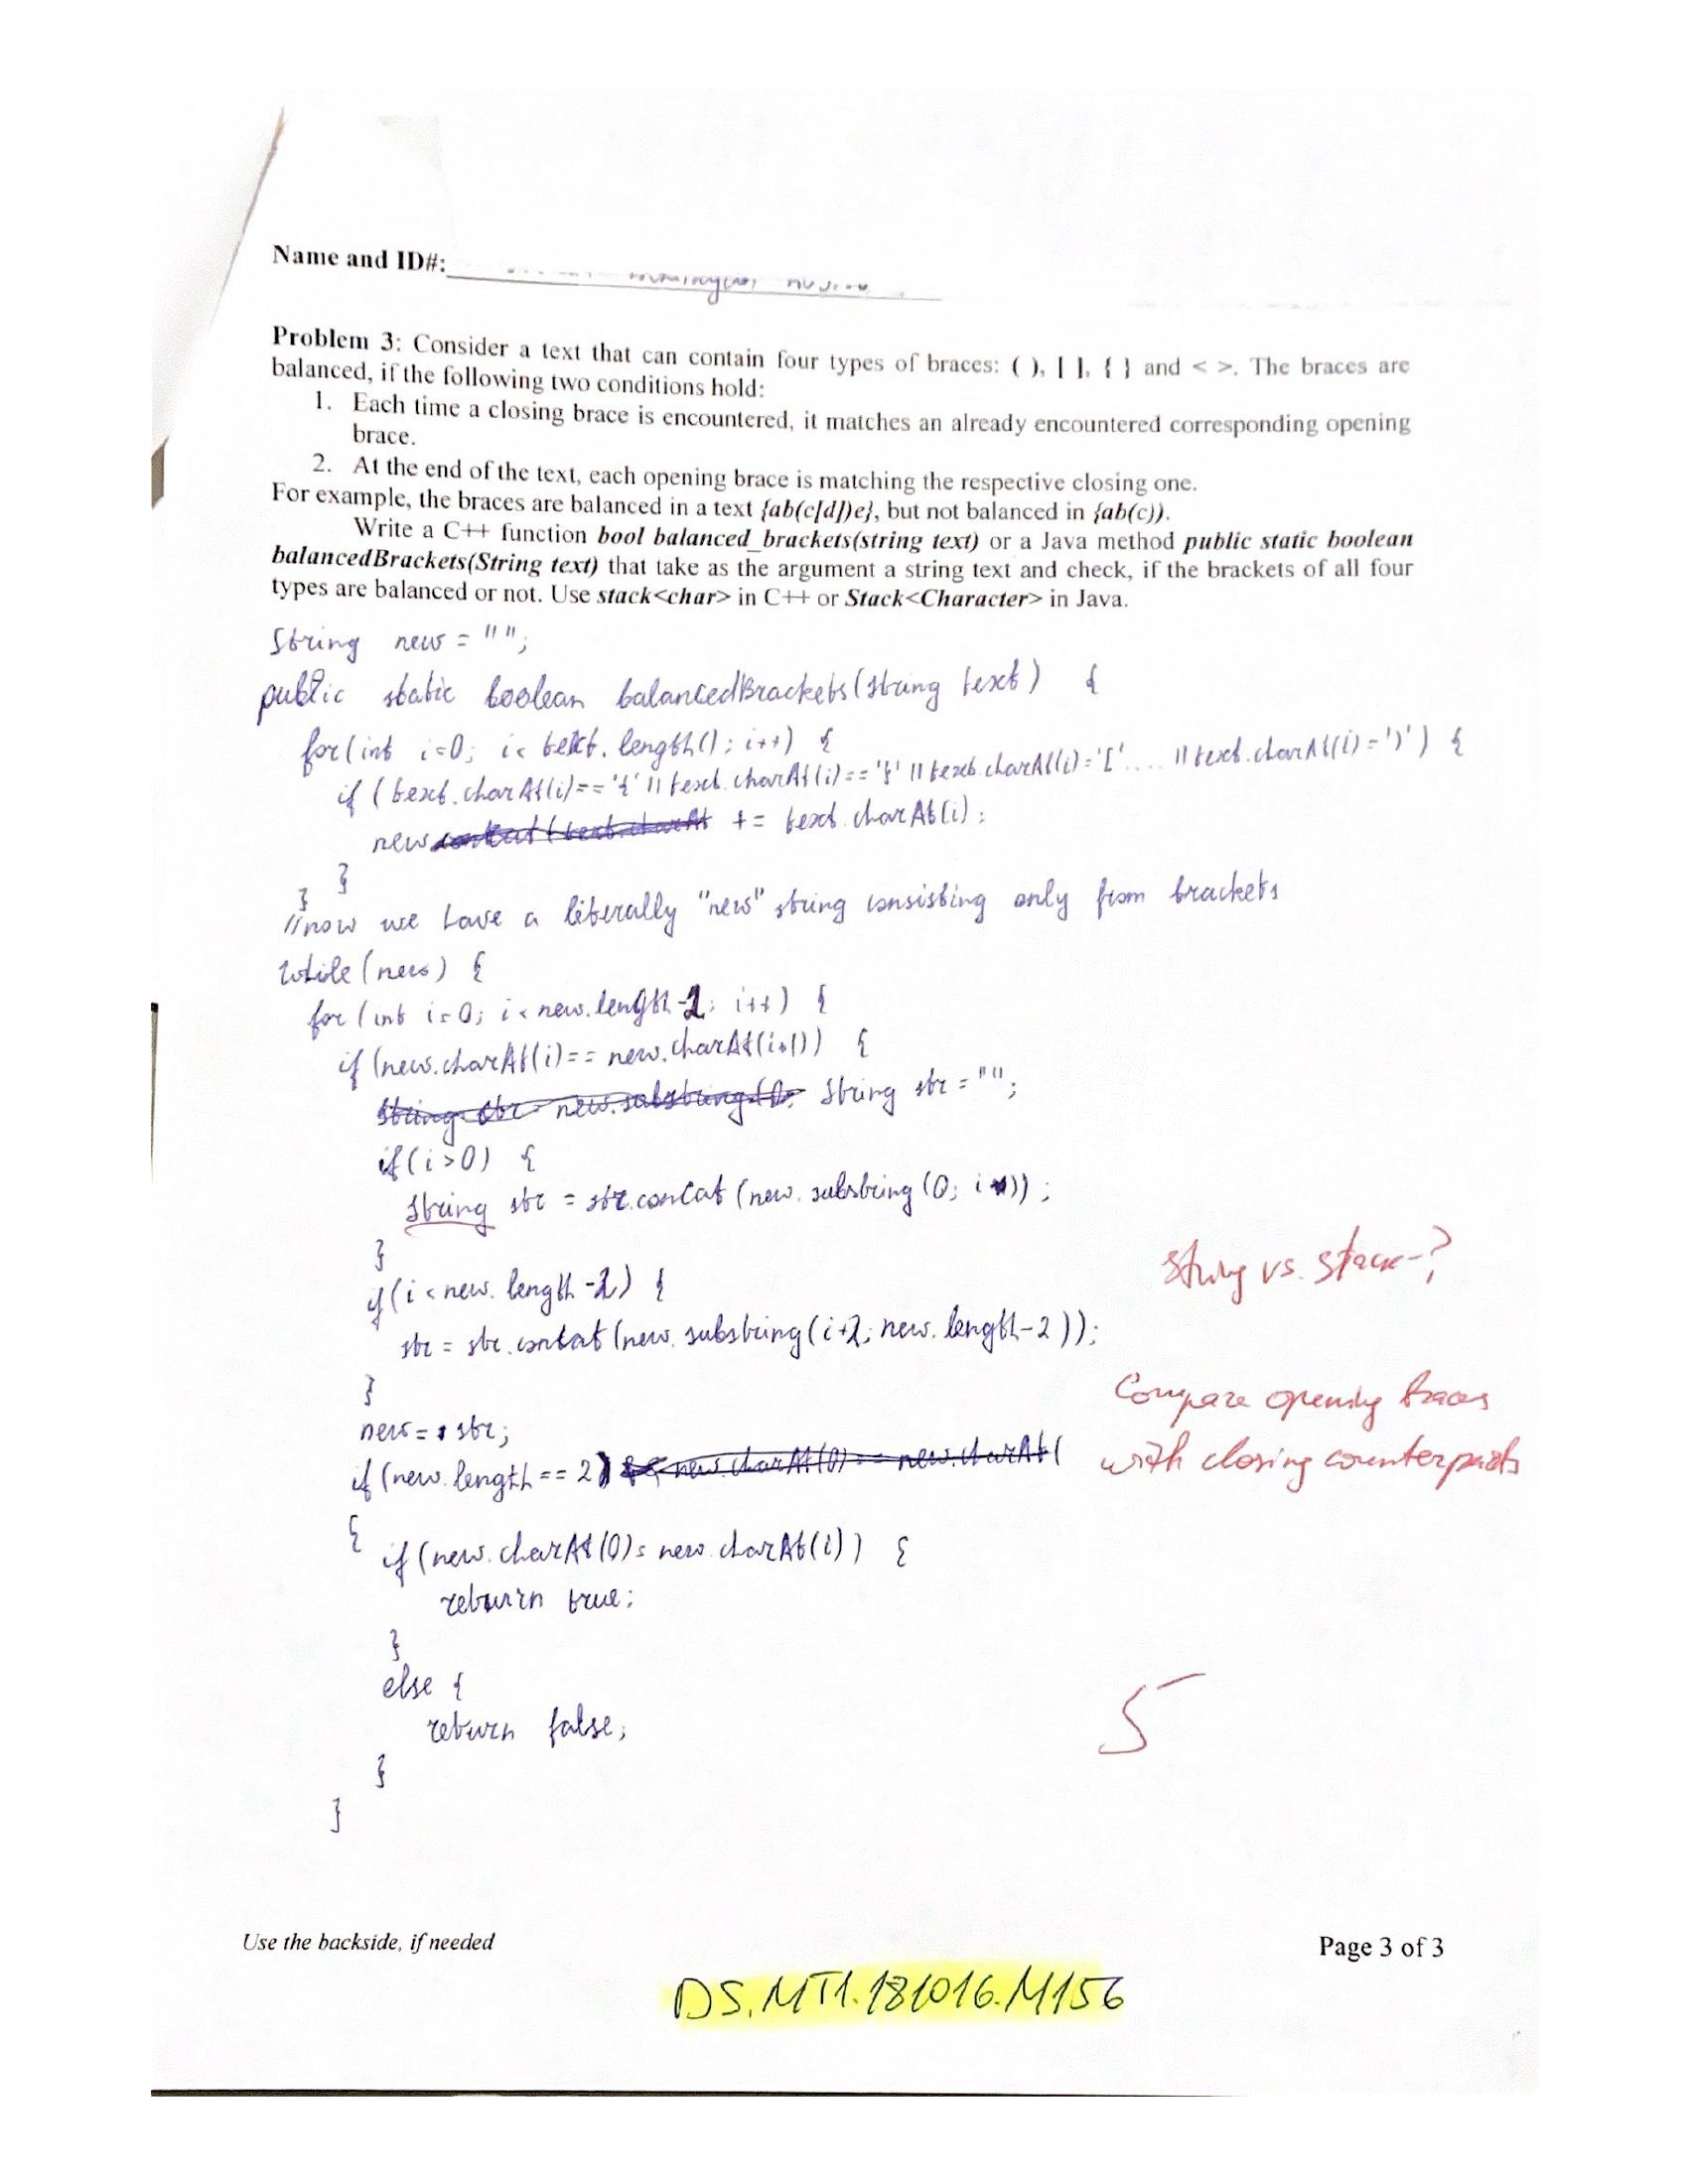 Name and ID#:
Problem 3: Consider a text that can contain four types of braces: ( ), [ ], { } and < >. The braces are
balanced, if the following two conditions hold:
1. Each time a closing brace is encountered, it matches an already encountered corresponding opening
brace.
2. At the end of the text, each opening brace is matching the respective closing one.
For example, the braces are balanced in a text {ab(c[d])e}, but not balanced in {ab(c)).
Write a C++ function bool balanced_brackets(string text) or a Java method public static boolean
balancedBrackets(String text) that take as the argument a string text and check, if the brackets of all four
types are balanced or not. Use stack<char> in C++ or Stack<Character> in Java.
String new = "";
public static boolean balancedBrackets(String text) {
for(int i=0; i< text.length(); i++) {
if (text.charAt(i)=='{' || text.charAt(i)=='}' || text.charAt(i)='['.... || text.charAt(i)=')') {
new += text.charAt(i);
}
}
//now we have a literally "new" string consisting only from brackets
while (new) {
for (int i=0; i< new.length-1; i++) {
if (new.charAt(i)== new.charAt(i+1)) {
String str = new.substring(0; String str = "";
if(i>0) {
String str = str.concat(new.substring(0; i));
}
String vs. stack-?
if(i<new.length-2) {
str = str.concat(new.substring(i+2; new.length-2));
}
Compare opening braces
new= str;
with closing counterparts
if (new.length == 2) new.charAt(0) == new.charAt(
{
if (new.charAt(0)= new.charAt(i)) {
return true;
}
else {
return false;
}
5
}
Use the backside, if needed
Page 3 of 3
DS.MT1.181016.M156